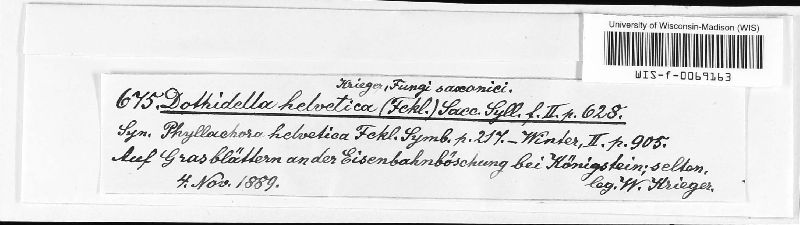 University of Wisconsin-Madison (WIS)
WIS-f-0069163
Krieger, Fungi saxonici.
675. Dothidella helvetica (Fckl.) Sacc. Syll. f. II. p. 628.
Syn. Phyllachora helvetica Fckl. Symb. p. 217. – Winter, II. p. 905.
Auf Grasblättern an der Eisenbahnböschung bei Königstein; selten.
4. Nov. 1889. leg. W. Krieger.